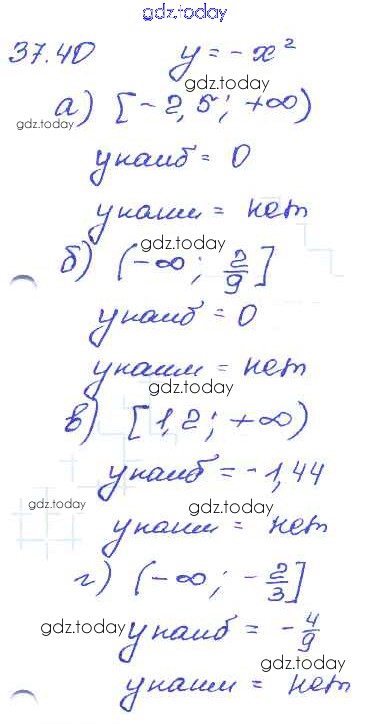 gdz.today
37.40 y = -x²
gdz.today
а) [-2,5; +∞)
gdz.today
yнаиб = 0
yнаим = нет
gdz.today
б) (-∞; 2/9]
yнаиб = 0
yнаим = нет
gdz.today
в) [1,2; +∞)
yнаиб = -1,44
gdz.today gdz.today
yнаим = нет
г) (-∞; -2/3]
gdz.today yнаиб = -4/9
gdz.today
yнаим = нет